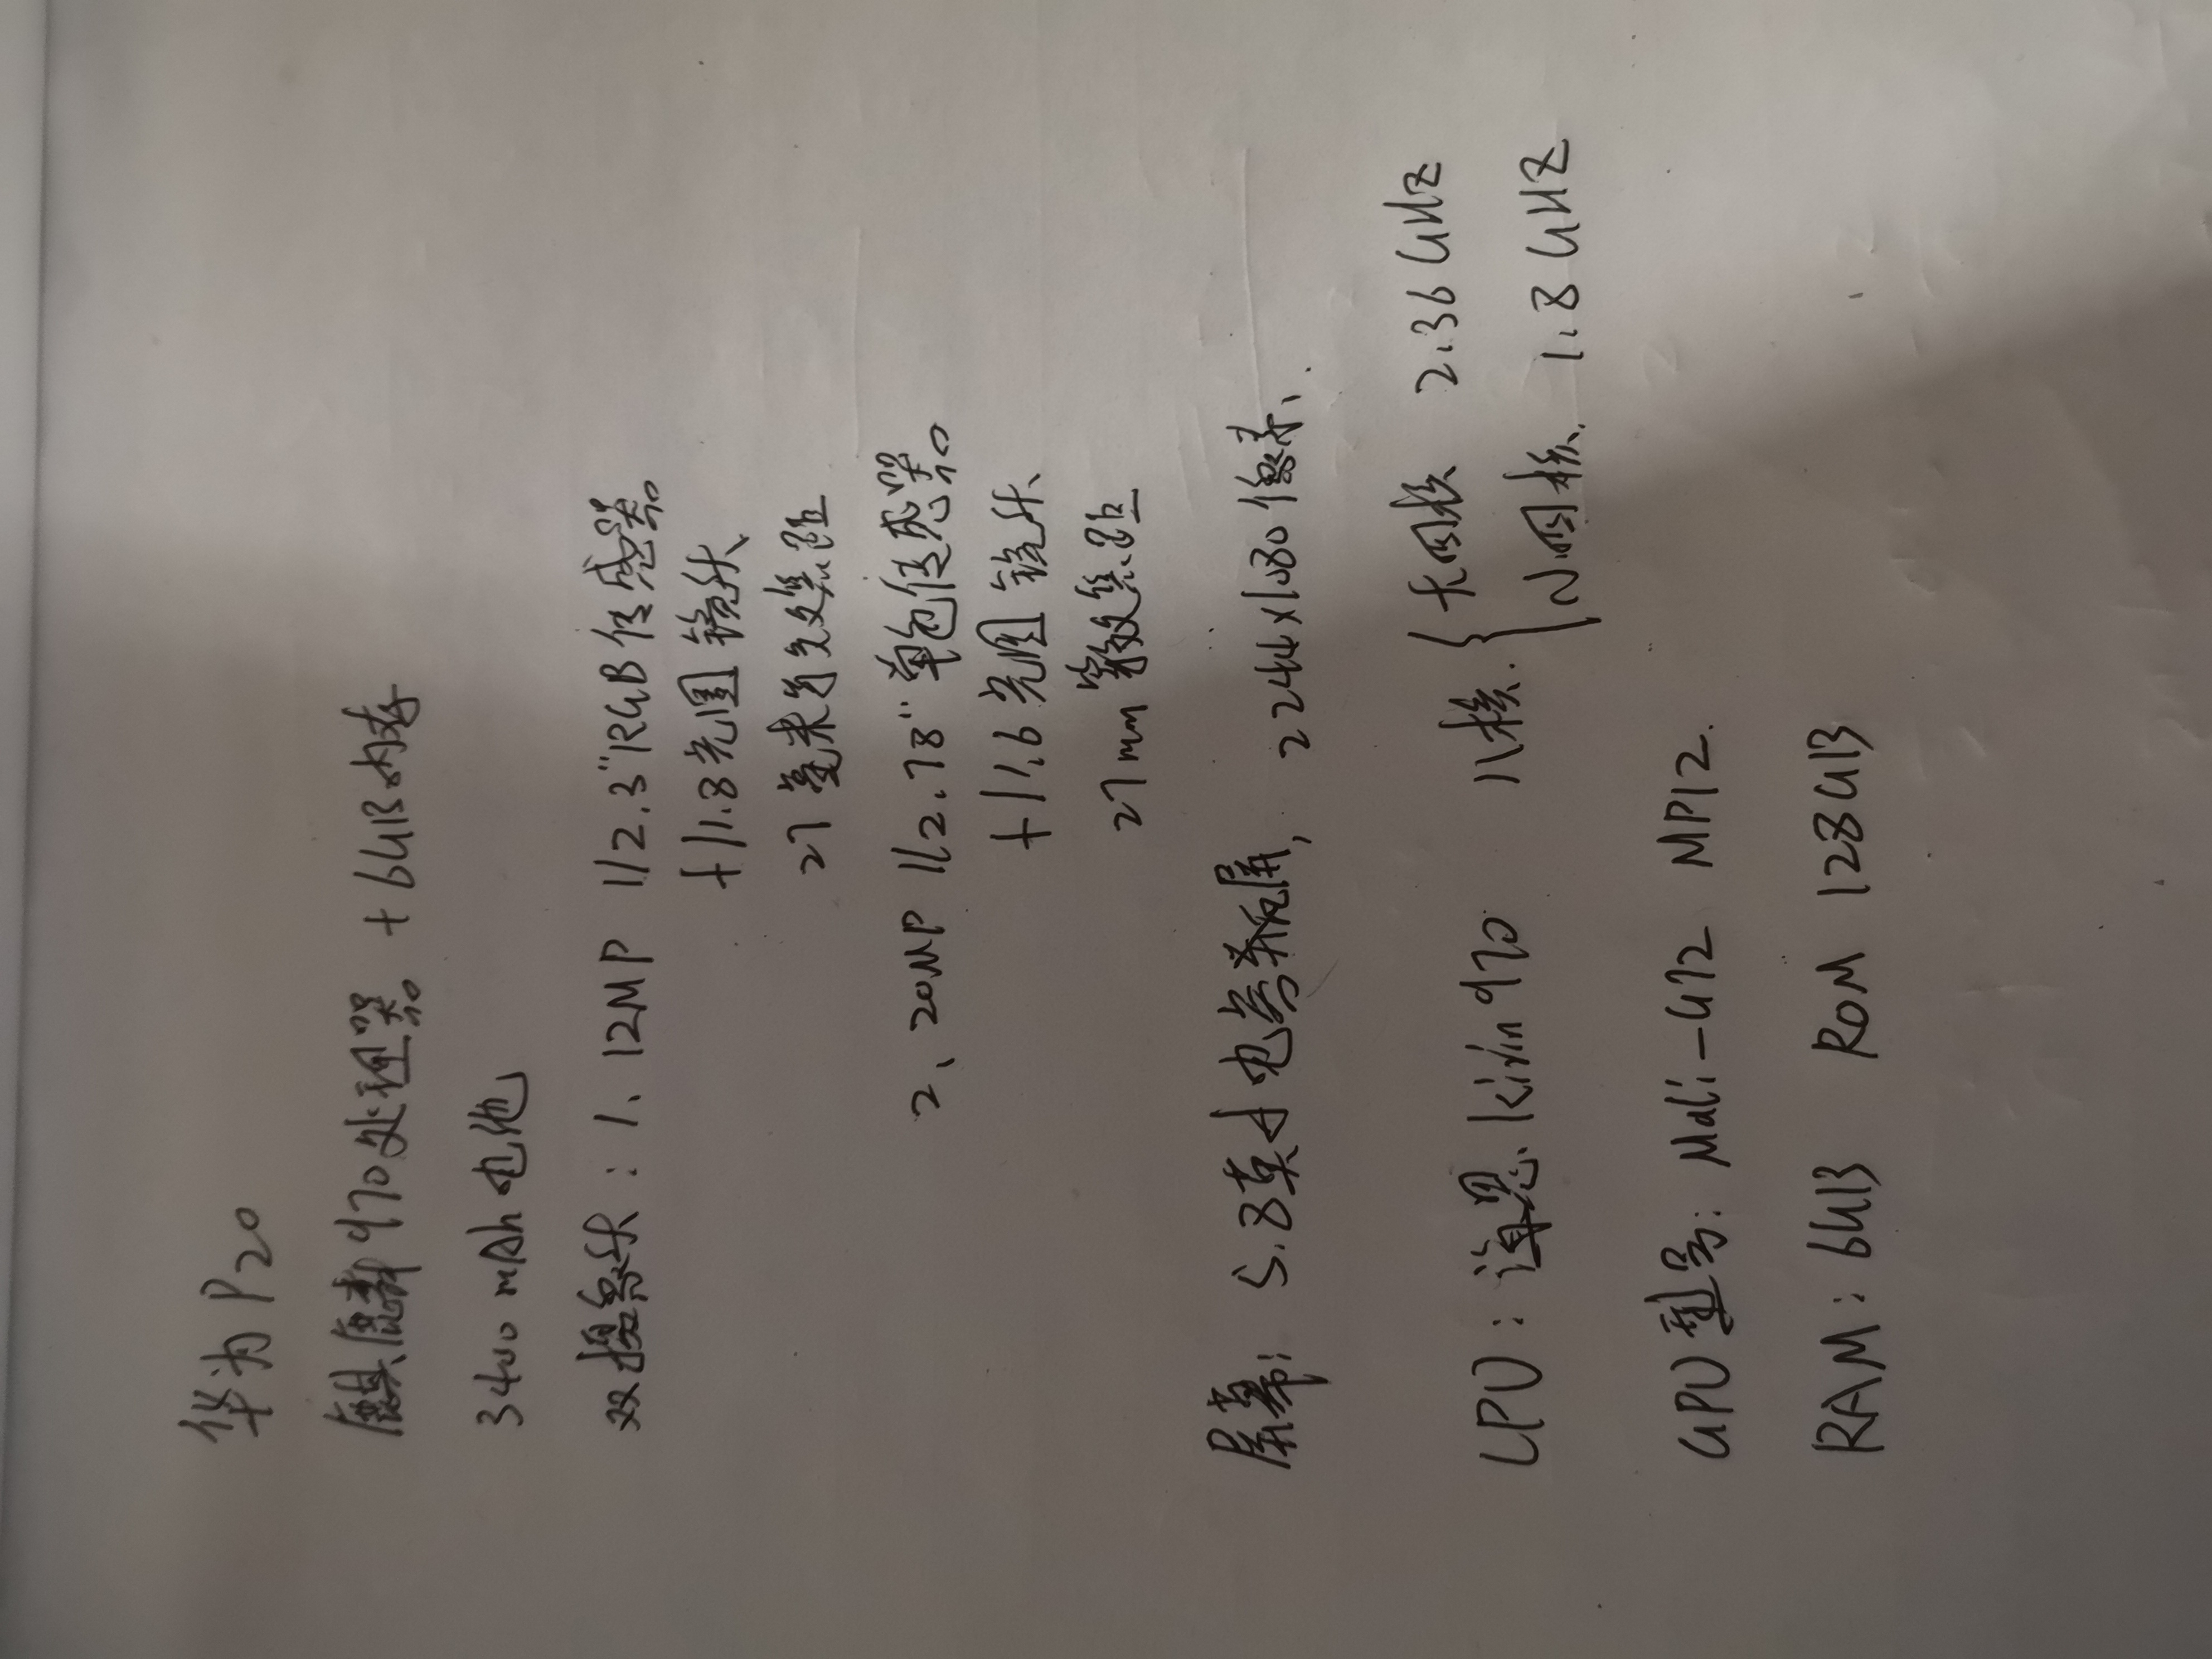 华为 P20
麒麟970处理器 + 6GB内存
3400 mAh 电池
双摄像头：1、12MP 1/2.3"RGB传感器
f/1.8光圈 镜头
27毫米有效焦距
2、20MP 1/2.78" 单色传感器
f/1.6光圈 镜头
27mm 等效焦距
屏幕：5.8英寸 电容屏， 2244x1080像素、
大四核 2.36GHZ
CPU：海思 kirin 970 八核
小四核 1.8GHZ
GPU型号：Mali-G72 MP12.
RAM：6GB ROM 128GB